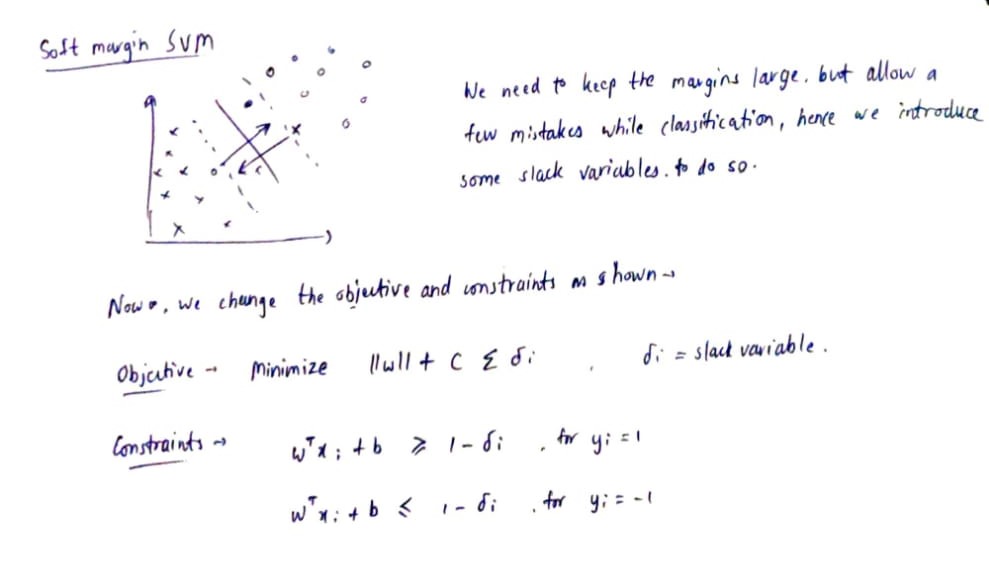 Soft margin SVM
We need to keep the margins large, but allow a
few mistakes while classification, hence we introduce
some slack variables. to do so.
Now, we change the objective and constraints as shown →
Objective → Minimize ||w|| + C Σ δi , δi = slack variable.
Constraints → wᵀxi + b ≥ 1 - δi , for yi = 1
wᵀxi + b ≤ 1 - δi , for yi = -1